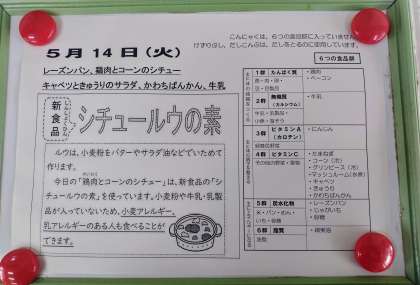 こんにゃくは、6つの食品群に入っていません。
けずりぶし、だしこんぶは、だしをとるのに使用しています。
5月14日(火)
レーズンパン、鶏肉とコーンのシチュー
キャベツときゅうりのサラダ、かわちばんかん、牛乳
6つの食品群
新食品
シチュールウの素
ルウは、小麦粉をバターやサラダ油などでいためて
作ります。
今日の「鶏肉とコーンのシチュー」は、新食品の「シ
チュールウの素」を使っています。小麦粉や牛乳・乳製
品が入っていないため、小麦アレルギー、
乳アレルギーのある人も食べることが
できます。
1群 たんぱく質
魚・肉・卵・
豆・豆製品
・鶏肉
・ベーコン
2群 無機質
(カルシウム)
牛乳・乳製品・
小魚・海そう
・牛乳
3群 ビタミンA
(カロテン)
緑黄色野菜
・にんじん
4群 ビタミンC
その他の野菜・果物
・たまねぎ
・コーン(冷)
・グリンピース(冷)
・マッシュルーム(水煮)
・キャベツ
・きゅうり
・かわちばんかん
5群 炭水化物
米・パン・めん・
いも・砂糖
・レーズンパン
・じゃがいも
・砂糖
6群 脂質
油脂
・綿実油